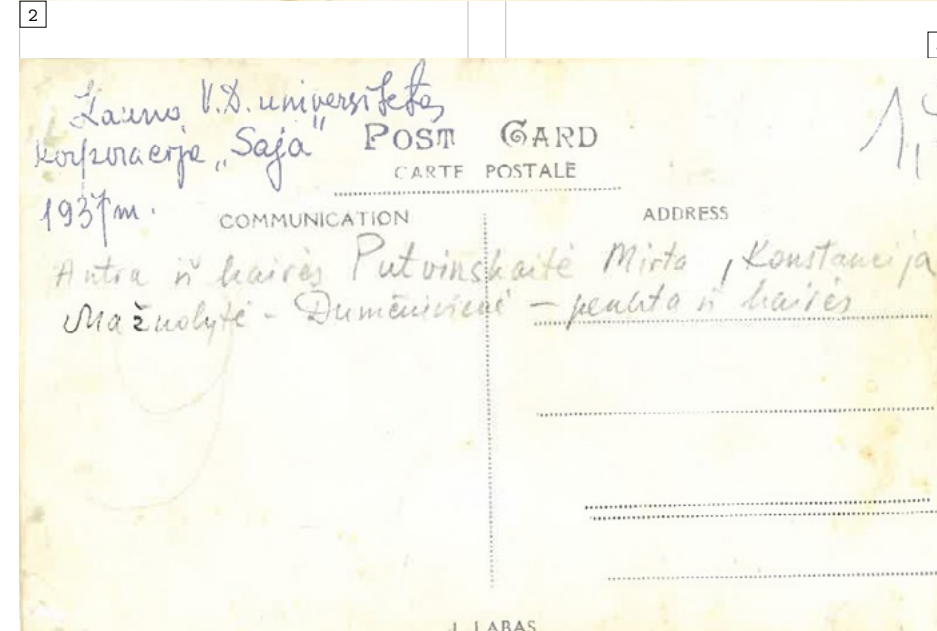 2
Kauno V.D. universitetas
Korporacija „Saja"
1937 m.
POST CARD
CARTE POSTALE
COMMUNICATION
ADDRESS
Antra iš kairės Putvinskaitė Mirta, Konstancija
Mažuolytė - Dumčiuvienė – penkta iš kairės
J. LABAS